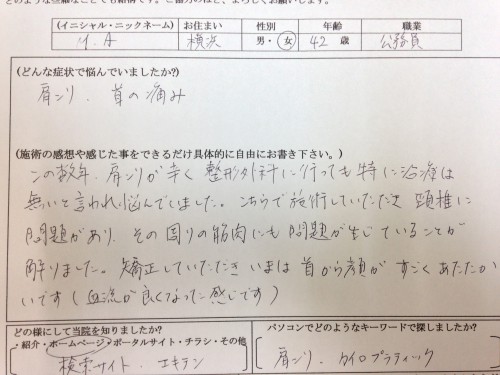 (イニシャル・ニックネーム) お住まい 性別 年齢 職業
Y. A 横浜 男・女 42 歳 公務員
(どんな症状で悩んでいましたか?)
肩こり、首の痛み
(施術の感想や感じた事をできるだけ具体的に自由にお書き下さい。)
この数年、肩こりが辛く整形外科に行っても特に治療は
無いと言われ悩んでしました。こちらで施術していただき頸椎に
問題があり、その周りの筋肉にも問題が生じていることが
解りました。矯正していただきいまは首から顔がすごくあたたか
いです(血流が良くなった感じです)
どの様にして当院を知りましたか?
・紹介・ホームページ・ポータルサイト・チラシ・その他
検索サイト、エキテン
パソコンでどのようなキーワードで探しましたか?
肩こり、カイロプラティック